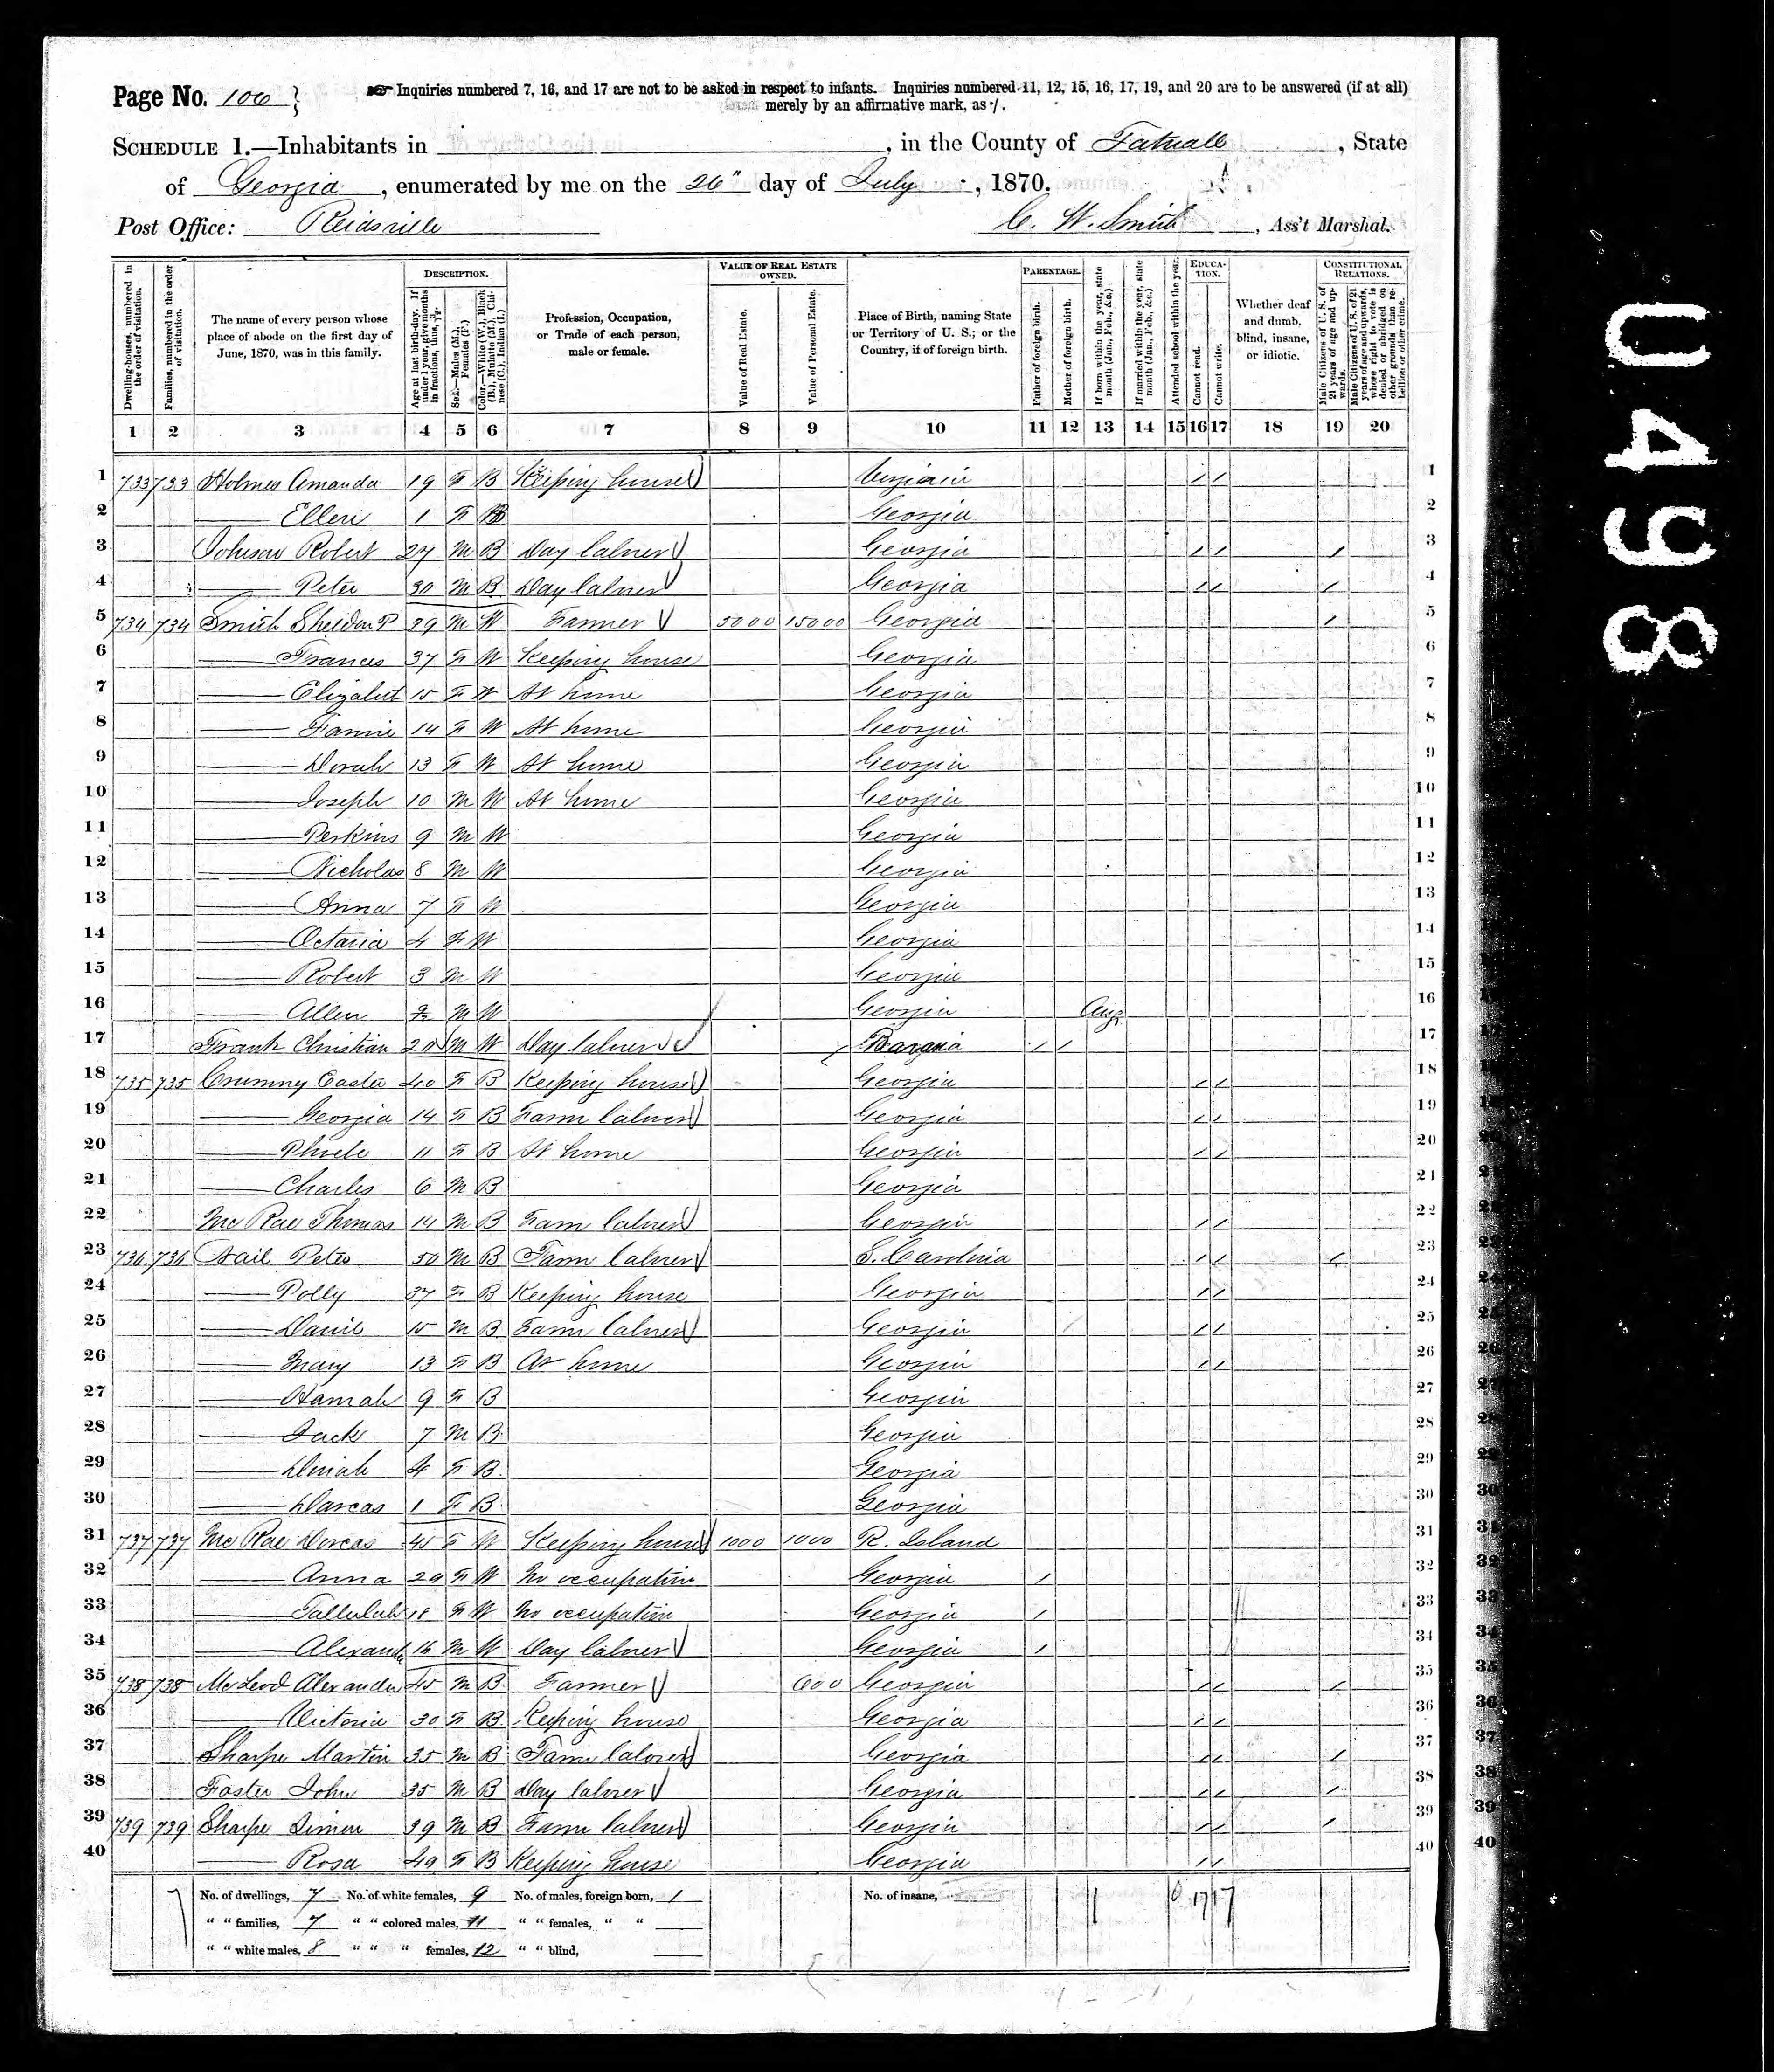 Page No. 106 }
☞ Inquiries numbered 7, 16, and 17 are not to be asked in respect to infants. Inquiries numbered 11, 12, 15, 16, 17, 19, and 20 are to be answered (if at all)
merely by an affirmative mark, as /.
SCHEDULE 1.—Inhabitants in , in the County of Tatnall , State
of Georgia , enumerated by me on the 26" day of July , 1870.
Post Office: Reidsville C. W. Smith , Ass't Marshal.
Dwelling-houses, numbered in the order of visitation.
Families, numbered in the order of visitation.
The name of every person whose place of abode on the first day of June, 1870, was in this family.
DESCRIPTION.
Age at last birth-day. If under 1 year, give months in fractions, thus, 3/12.
Sex.—Males (M.), Females (F.)
Color.—White (W.), Black (B.), Mulatto (M.), Chinese (C.), Indian (I.)
Profession, Occupation, or Trade of each person, male or female.
VALUE OF REAL ESTATE OWNED.
Value of Real Estate.
Value of Personal Estate.
Place of Birth, naming State or Territory of U. S.; or the Country, if of foreign birth.
PARENTAGE.
Father of foreign birth.
Mother of foreign birth.
If born within the year, state month (Jan., Feb., &c.)
If married within the year, state month (Jan., Feb., &c.)
Attended school within the year.
EDUCATION.
Cannot read.
Cannot write.
Whether deaf and dumb, blind, insane, or idiotic.
CONSTITUTIONAL RELATIONS.
Male Citizens of U. S. of 21 years of age and upwards.
Male Citizens of U. S. of 21 years of age and upwards, whose right to vote is denied or abridged on other grounds than rebellion or other crime.
1 2 3 4 5 6 7 8 9 10 11 12 13 14 15 16 17 18 19 20
1 733 733 Holmes Amanda 19 F B Keeping house Virginia / / 1
2 — Ellen 1 F B Georgia 2
3 Johnson Robert 27 M B Day laborer Georgia / / / 3
4 — Peter 30 M B Day laborer Georgia / / / 4
5 734 734 Smith Sheldon P 39 M W Farmer 5000 15000 Georgia / 5
6 — Frances 37 F W Keeping house Georgia 6
7 — Elizabet 15 F W At home Georgia 7
8 — Fannie 14 F W At home Georgia 8
9 — Dorah 13 F W At home Georgia 9
10 — Joseph 10 M W At home Georgia 10
11 — Perkins 9 M W Georgia 11
12 — Nicholas 8 M W Georgia 12
13 — Anna 7 F W Georgia 13
14 — Octavia 4 F W Georgia 14
15 — Robert 3 M W Georgia 15
16 — Allen M W Georgia Aug 16
17 Frank Christian M W Day laborer Bavaria / / 17
18 735 735 Crummy Easter 40 F B Keeping house Georgia / / 18
19 — Georgia 14 F B Farm laborer Georgia / / 19
20 — 11 F B At home Georgia / / 20
21 — Charles 6 M B Georgia 21
22 Mc Rae Thomas 14 M B Farm laborer Georgia / / 22
23 736 736 Peter 50 M B Farm laborer S. Carolina / / / 23
24 — Polly 37 F B Keeping house Georgia / / 24
25 — 15 M B Farm laborer Georgia / / 25
26 — Mary 13 F B At home Georgia / / 26
27 — Hannah 9 F B Georgia 27
28 — Jack 7 M B Georgia 28
29 — 4 F B Georgia 29
30 — Darcas 1 F B Georgia 30
31 737 737 Mc Rae Dorcas 45 F W Keeping house 1000 1000 R. Island 31
32 — Anna 29 F W No occupation Georgia / 32
33 — Tallulah 18 F W No occupation Georgia / 33
34 — Alexander 16 M W Day laborer Georgia / 34
35 738 738 McLeod Alexander 45 M B Farmer 600 Georgia / / / 35
36 — Victoria 30 F B Keeping house Georgia / / 36
37 Sharpe Martin 35 M B Farm laborer Georgia / / / 37
38 Foster John 35 M B Day laborer Georgia / / / 38
39 739 739 Sharpe Simon 39 M B Farm laborer Georgia / / / 39
40 — Rosa 49 F B Keeping house Georgia / / 40
No. of dwellings, 7 No. of white females, 9 No. of males, foreign born, 1 No. of insane, 1 17 17
" " families, 7 " " colored males, 11 " " females, " "
" " white males, 8 " " " females, 12 " " blind,
0498